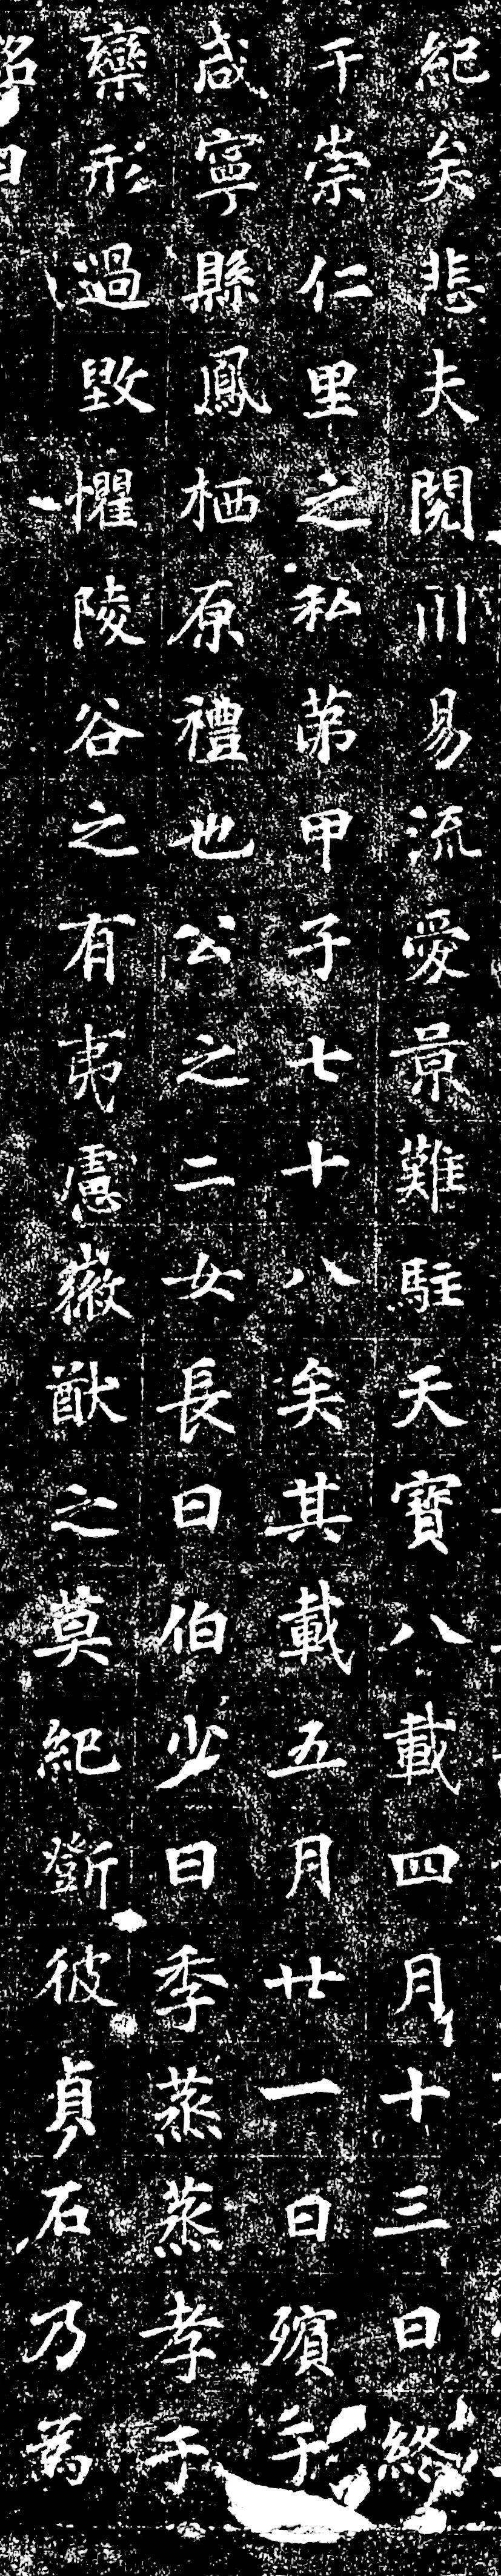 紀矣悲夫閱川易流愛景難駐天寶八載四月十三日終
于崇仁里之私第甲子七十八矣其載五月廿一日殯于
咸寧縣鳳栖原禮也公之二女長曰伯少曰季蒸蒸孝于
欒形過毀懼陵谷之有夷慮徽猷之莫紀斲彼貞石乃為
銘曰